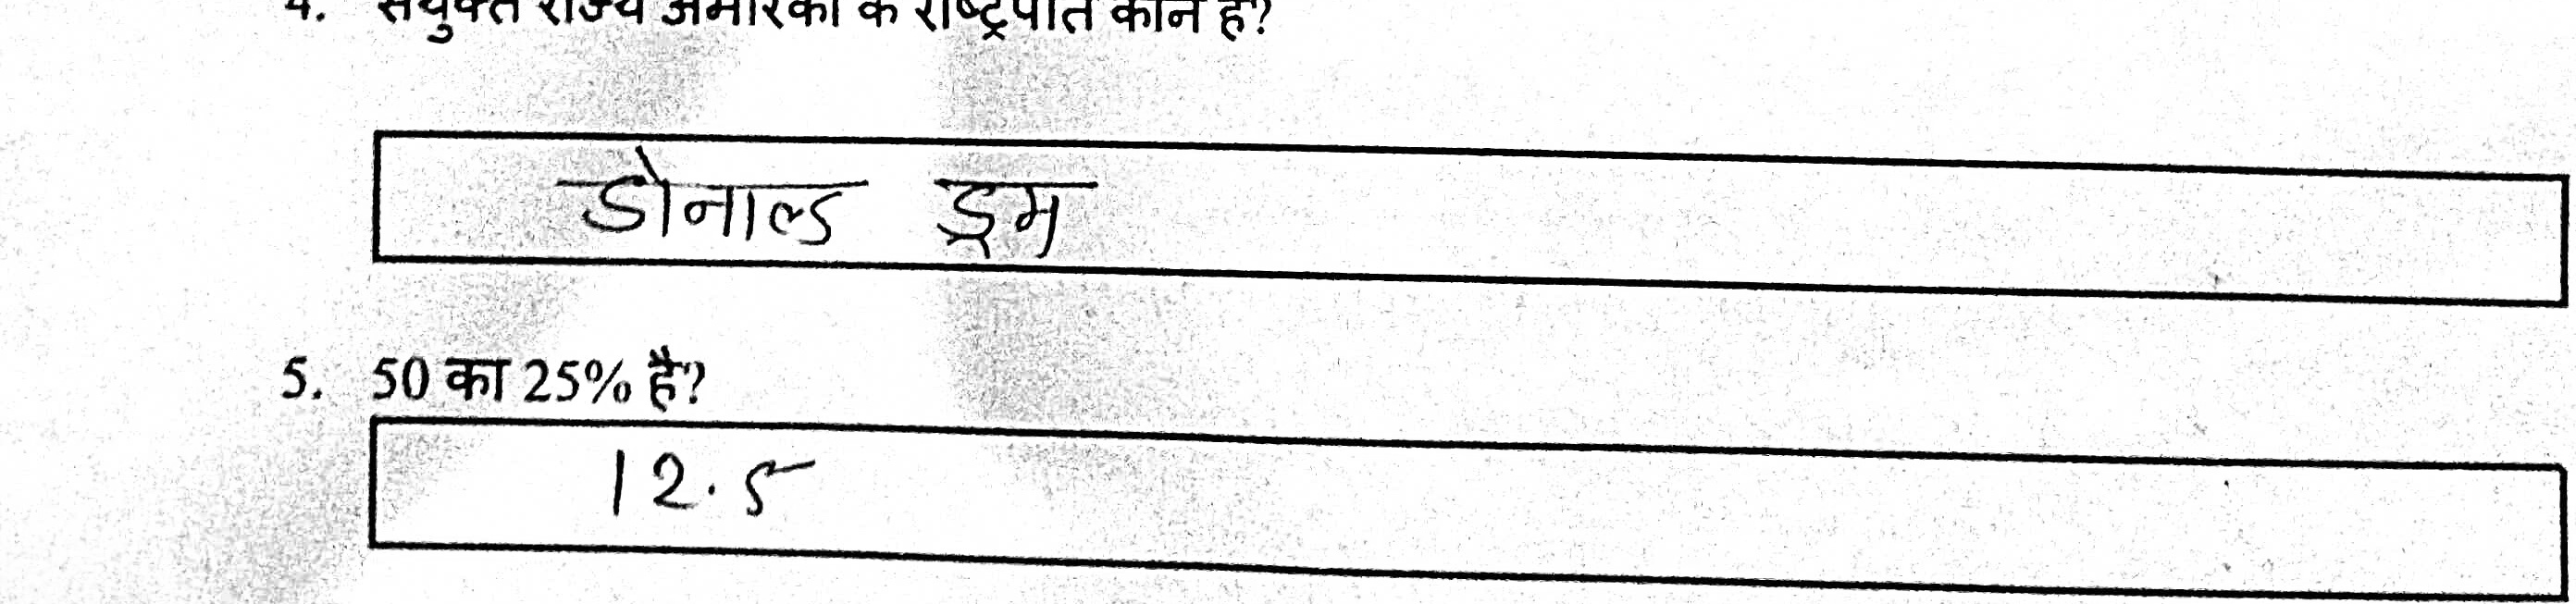 4. संयुक्त राज्य अमेरिका के राष्ट्रपति कौन है?
डोनाल्ड ड्रम
5. 50 का 25% है?
12.5